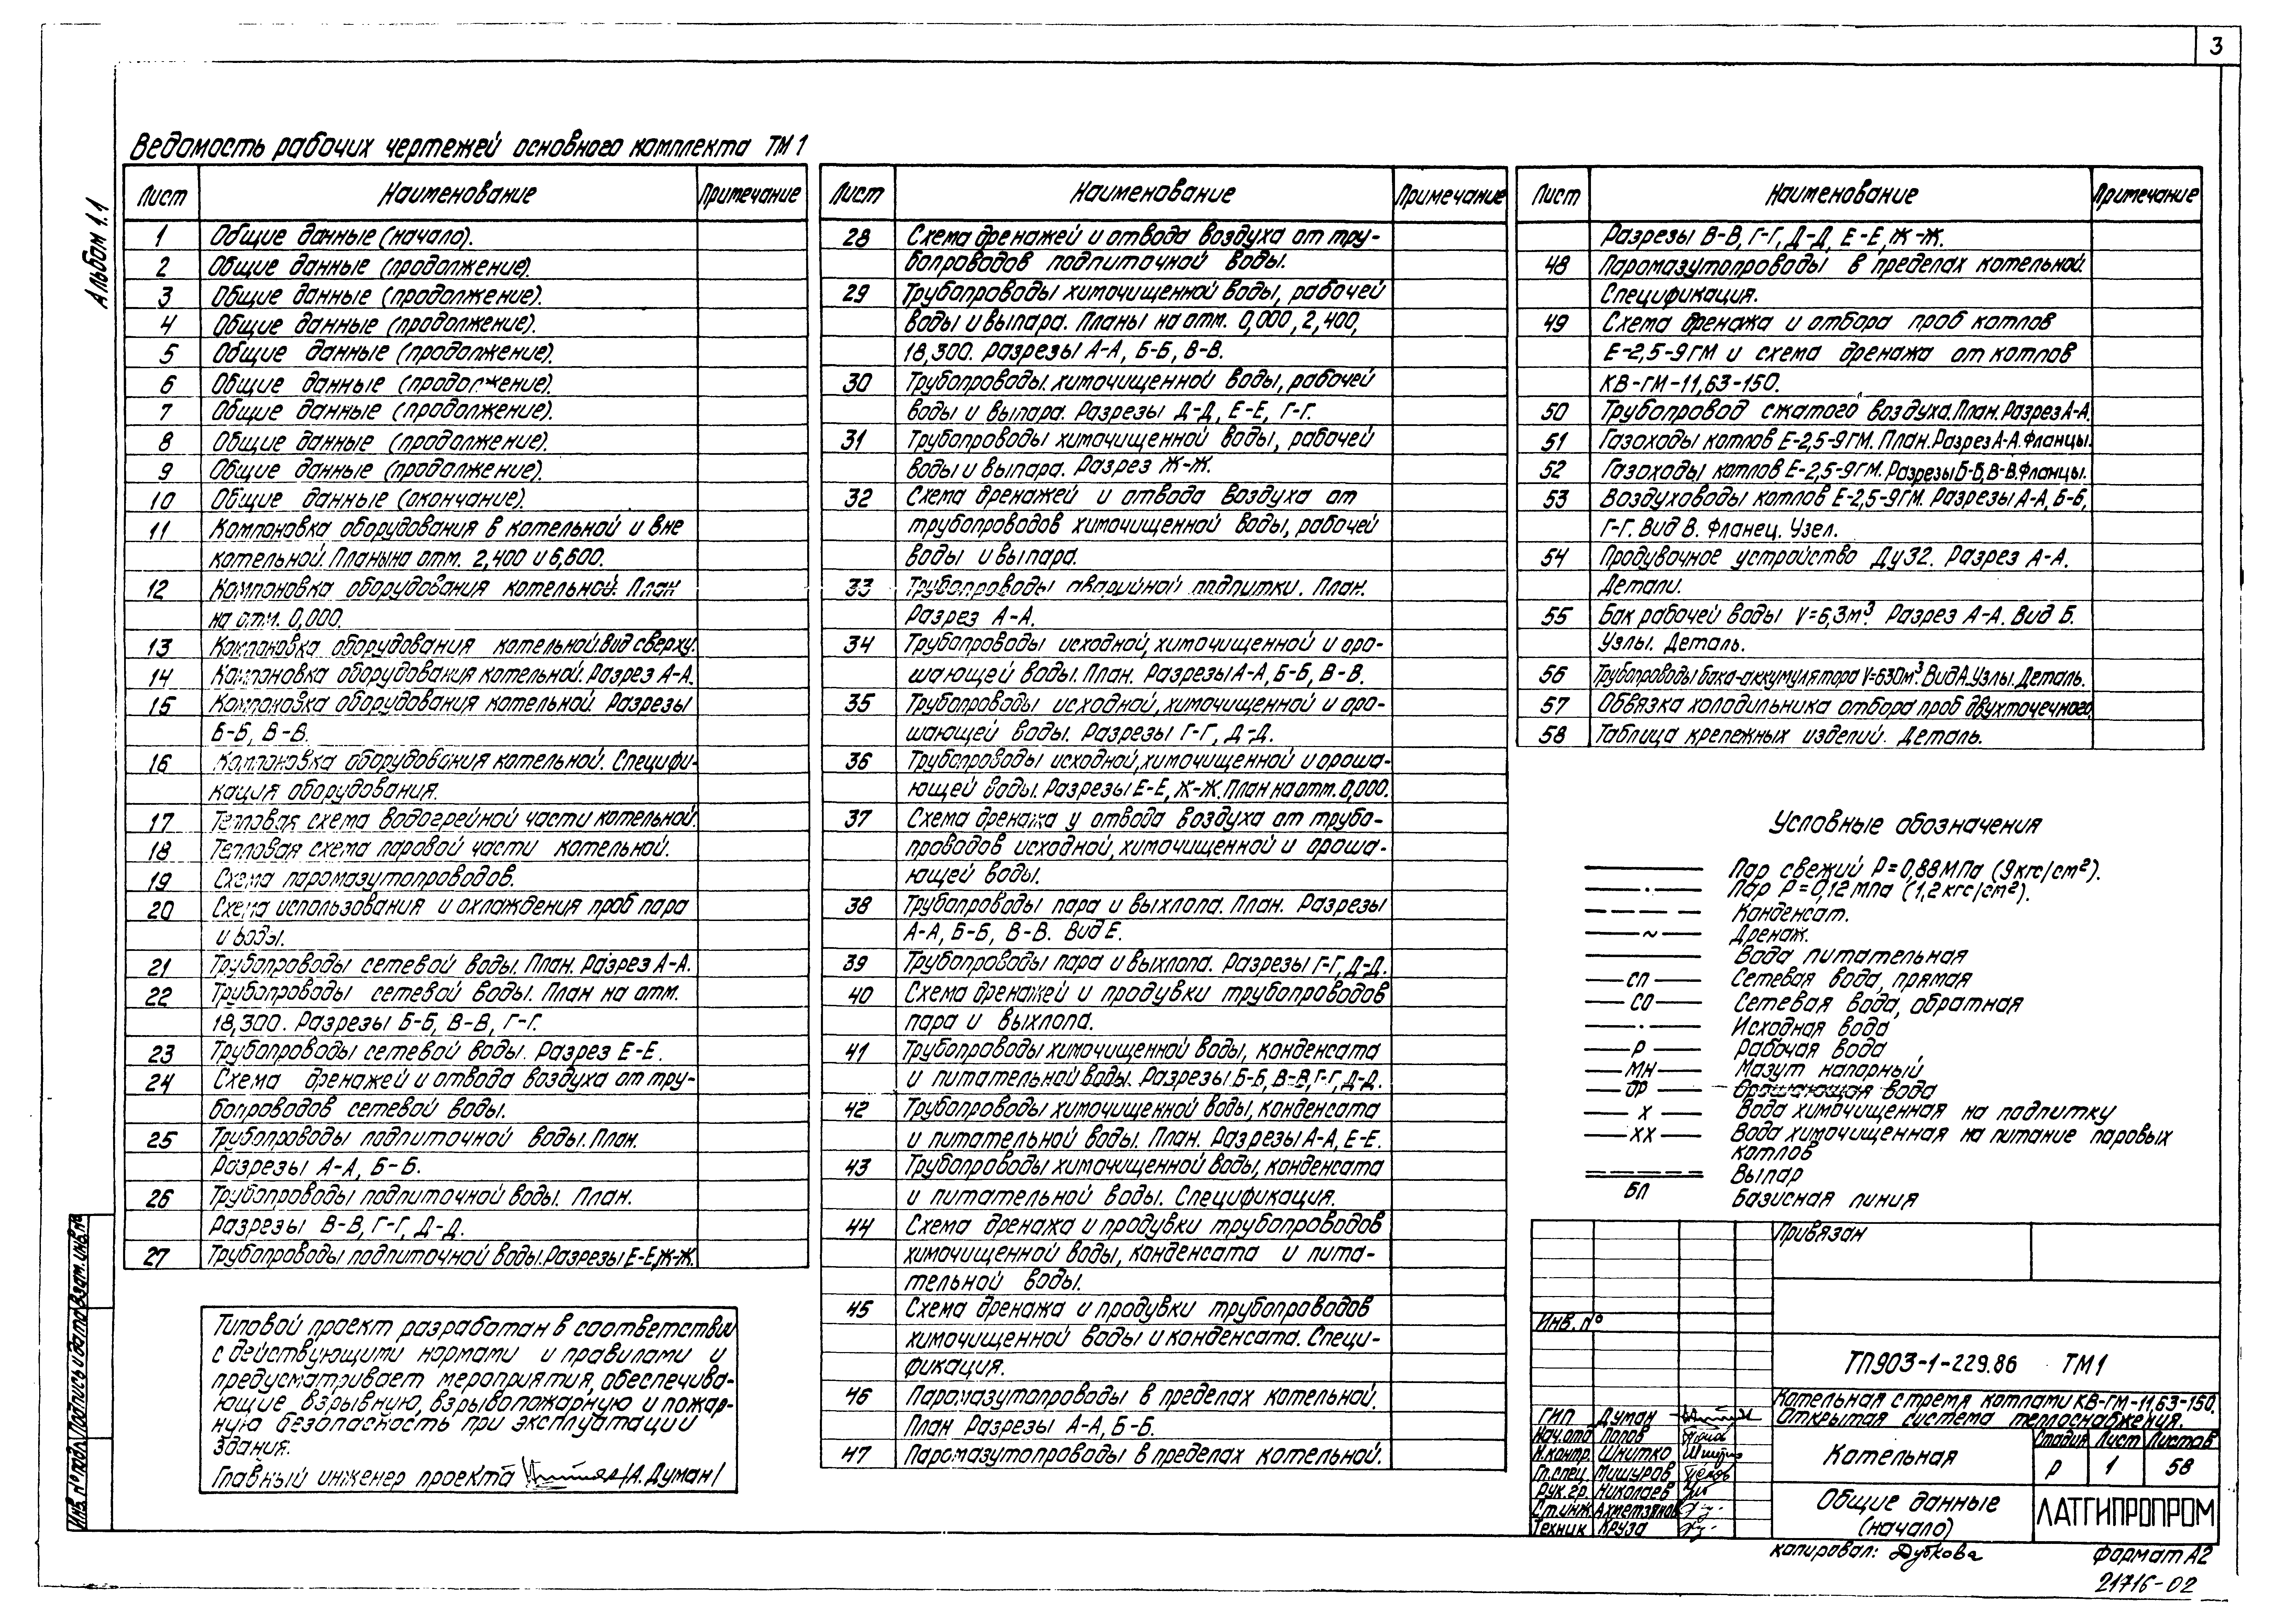 3
Альбом 1.1
Ведомость рабочих чертежей основного комплекта ТМ1
Лист Наименование Примечание
1 Общие данные (начало).
2 Общие данные (продолжение).
3 Общие данные (продолжение).
4 Общие данные (продолжение).
5 Общие данные (продолжение).
6 Общие данные (продолжение).
7 Общие данные (продолжение).
8 Общие данные (продолжение).
9 Общие данные (продолжение).
10 Общие данные (окончание).
11 Компоновка оборудования в котельной и вне
котельной. Планы на отм. 2,400 и 6,600.
12 Компоновка оборудования котельной. План
на отм. 0,000.
13 Компоновка оборудования котельной. Вид сверху.
14 Компоновка оборудования котельной. Разрез А-А.
15 Компоновка оборудования котельной. Разрезы
Б-Б, В-В.
16 Компоновка оборудования котельной. Специфи-
кация оборудования.
17 Тепловая схема водогрейной части котельной.
18 Тепловая схема паровой части котельной.
19 Схема паромазутопроводов.
20 Схема использования и охлаждения проб пара
и воды.
21 Трубопроводы сетевой воды. План. Разрез А-А.
22 Трубопроводы сетевой воды. План на отм.
18,300. Разрезы Б-Б, В-В, Г-Г.
23 Трубопроводы сетевой воды. Разрез Е-Е.
24 Схема дренажей и отвода воздуха от тру-
бопроводов сетевой воды.
25 Трубопроводы подпиточной воды. План.
Разрезы А-А, Б-Б.
26 Трубопроводы подпиточной воды. План.
Разрезы В-В, Г-Г, Д-Д.
27 Трубопроводы подпиточной воды. Разрезы Е-Е, Ж-Ж.
Типовой проект разработан в соответствии
с действующими нормами и правилами и
предусматривает мероприятия, обеспечива-
ющие взрывную, взрывопожарную и пожар-
ную безопасность при эксплуатации
здания.
Главный инженер проекта /А.Думан/
Лист Наименование Примечание
28 Схема дренажей и отвода воздуха от тру-
бопроводов подпиточной воды.
29 Трубопроводы химочищенной воды, рабочей
воды и выпара. Планы на отм. 0,000, 2,400,
18,300. Разрезы А-А, Б-Б, В-В.
30 Трубопроводы химочищенной воды, рабочей
воды и выпара. Разрезы Д-Д, Е-Е, Г-Г.
31 Трубопроводы химочищенной воды, рабочей
воды и выпара. Разрез Ж-Ж.
32 Схема дренажей и отвода воздуха от
трубопроводов химочищенной воды, рабочей
воды и выпара.
33 Трубопроводы аварийной подпитки. План.
Разрез А-А.
34 Трубопроводы исходной, химочищенной и оро-
шающей воды. План. Разрезы А-А, Б-Б, В-В.
35 Трубопроводы исходной, химочищенной и оро-
шающей воды. Разрезы Г-Г, Д-Д.
36 Трубопроводы исходной, химочищенной и ороша-
ющей воды. Разрезы Е-Е, Ж-Ж. План на отм. 0,000.
37 Схема дренажа у отвода воздуха от трубо-
проводов исходной, химочищенной и ороша-
ющей воды.
38 Трубопроводы пара и выхлопа. План. Разрезы
А-А, Б-Б, В-В. Вид Е.
39 Трубопроводы пара и выхлопа. Разрезы Г-Г, Д-Д.
40 Схема дренажей и продувки трубопроводов
пара и выхлопа.
41 Трубопроводы химочищенной воды, конденсата
и питательной воды. Разрезы Б-Б, В-В, Г-Г, Д-Д.
42 Трубопроводы химочищенной воды, конденсата
и питательной воды. План. Разрезы А-А, Е-Е.
43 Трубопроводы химочищенной воды, конденсата
и питательной воды. Спецификация.
44 Схема дренажа и продувки трубопроводов
химочищенной воды, конденсата и пита-
тельной воды.
45 Схема дренажа и продувки трубопроводов
химочищенной воды и конденсата. Специ-
фикация.
46 Паромазутопроводы в пределах котельной.
План Разрезы А-А, Б-Б.
47 Паромазутопроводы в пределах котельной.
Лист Наименование Примечание
Разрезы В-В, Г-Г, Д-Д, Е-Е, Ж-Ж.
48 Паромазутопроводы в пределах котельной.
Спецификация.
49 Схема дренажа и отбора проб котлов
Е-2,5-9ГМ и схема дренажа от котлов
КВ-ГМ-11,63-150.
50 Трубопровод сжатого воздуха. План. Разрез А-А.
51 Газоходы котлов Е-2,5-9ГМ. План. Разрез А-А. Фланцы.
52 Газоходы котлов Е-2,5-9ГМ. Разрезы Б-Б, В-В. Фланцы.
53 Воздуховоды котлов Е-2,5-9ГМ. Разрезы А-А, Б-Б,
Г-Г. Вид В. Фланец. Узел.
54 Продувочное устройство Ду32. Разрез А-А.
Детали.
55 Бак рабочей воды V=6,3м³. Разрез А-А. Вид Б.
Узлы. Деталь.
56 Трубопроводы бака-аккумулятора V=630м³. Вид А. Узлы. Деталь.
57 Обвязка холодильника отбора проб двухточечного.
58 Таблица крепежных изделий. Деталь.
Условные обозначения
Пар свежий Р=0,88МПа (9кгс/см²).
Пар Р=0,12МПа (1,2кгс/см²).
Конденсат.
~ Дренаж.
Вода питательная
СП Сетевая вода, прямая
СО Сетевая вода, обратная
Исходная вода
Р Рабочая вода
МН Мазут напорный
ОР Орошающая вода
Х Вода химочищенная на подпитку
ХХ Вода химочищенная на питание паровых
котлов
Выпар
БЛ Базисная линия
Привязан
Инв. №
ТП903-1-229.86 ТМ1
Котельная с тремя котлами КВ-ГМ-11,63-150.
Открытая система теплоснабжения.
ГИП Думан
Нач.отд Попов
Н.контр. Шнитко
Гл.спец. Мишуров
Рук.гр. Николаев
Ст.инж. Ахметзянов
Техник Круза
Котельная
Стадия Лист Листов
Р 1 58
Общие данные
(начало)
ЛАТГИПРОПРОМ
Копировал: Дубкова
Формат А2
21716-02
Инв. № подл. Подпись и дата Взам. инв. №